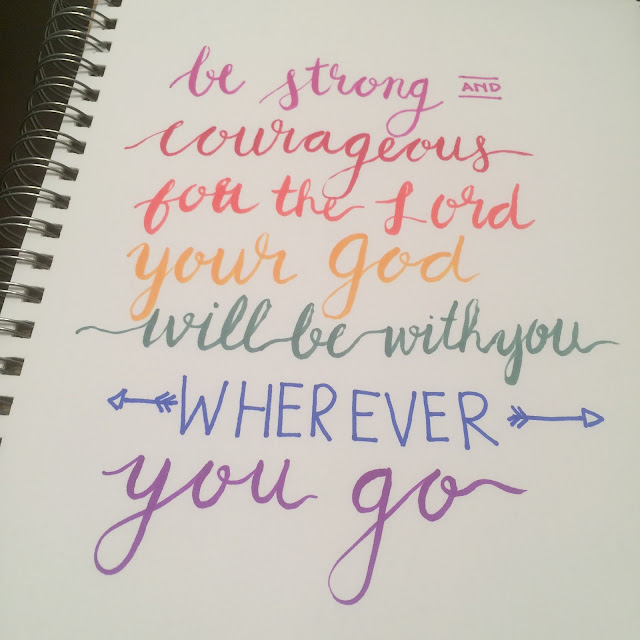 be strong AND
courageous
for the Lord
your God
will be with you
WHEREVER
you go